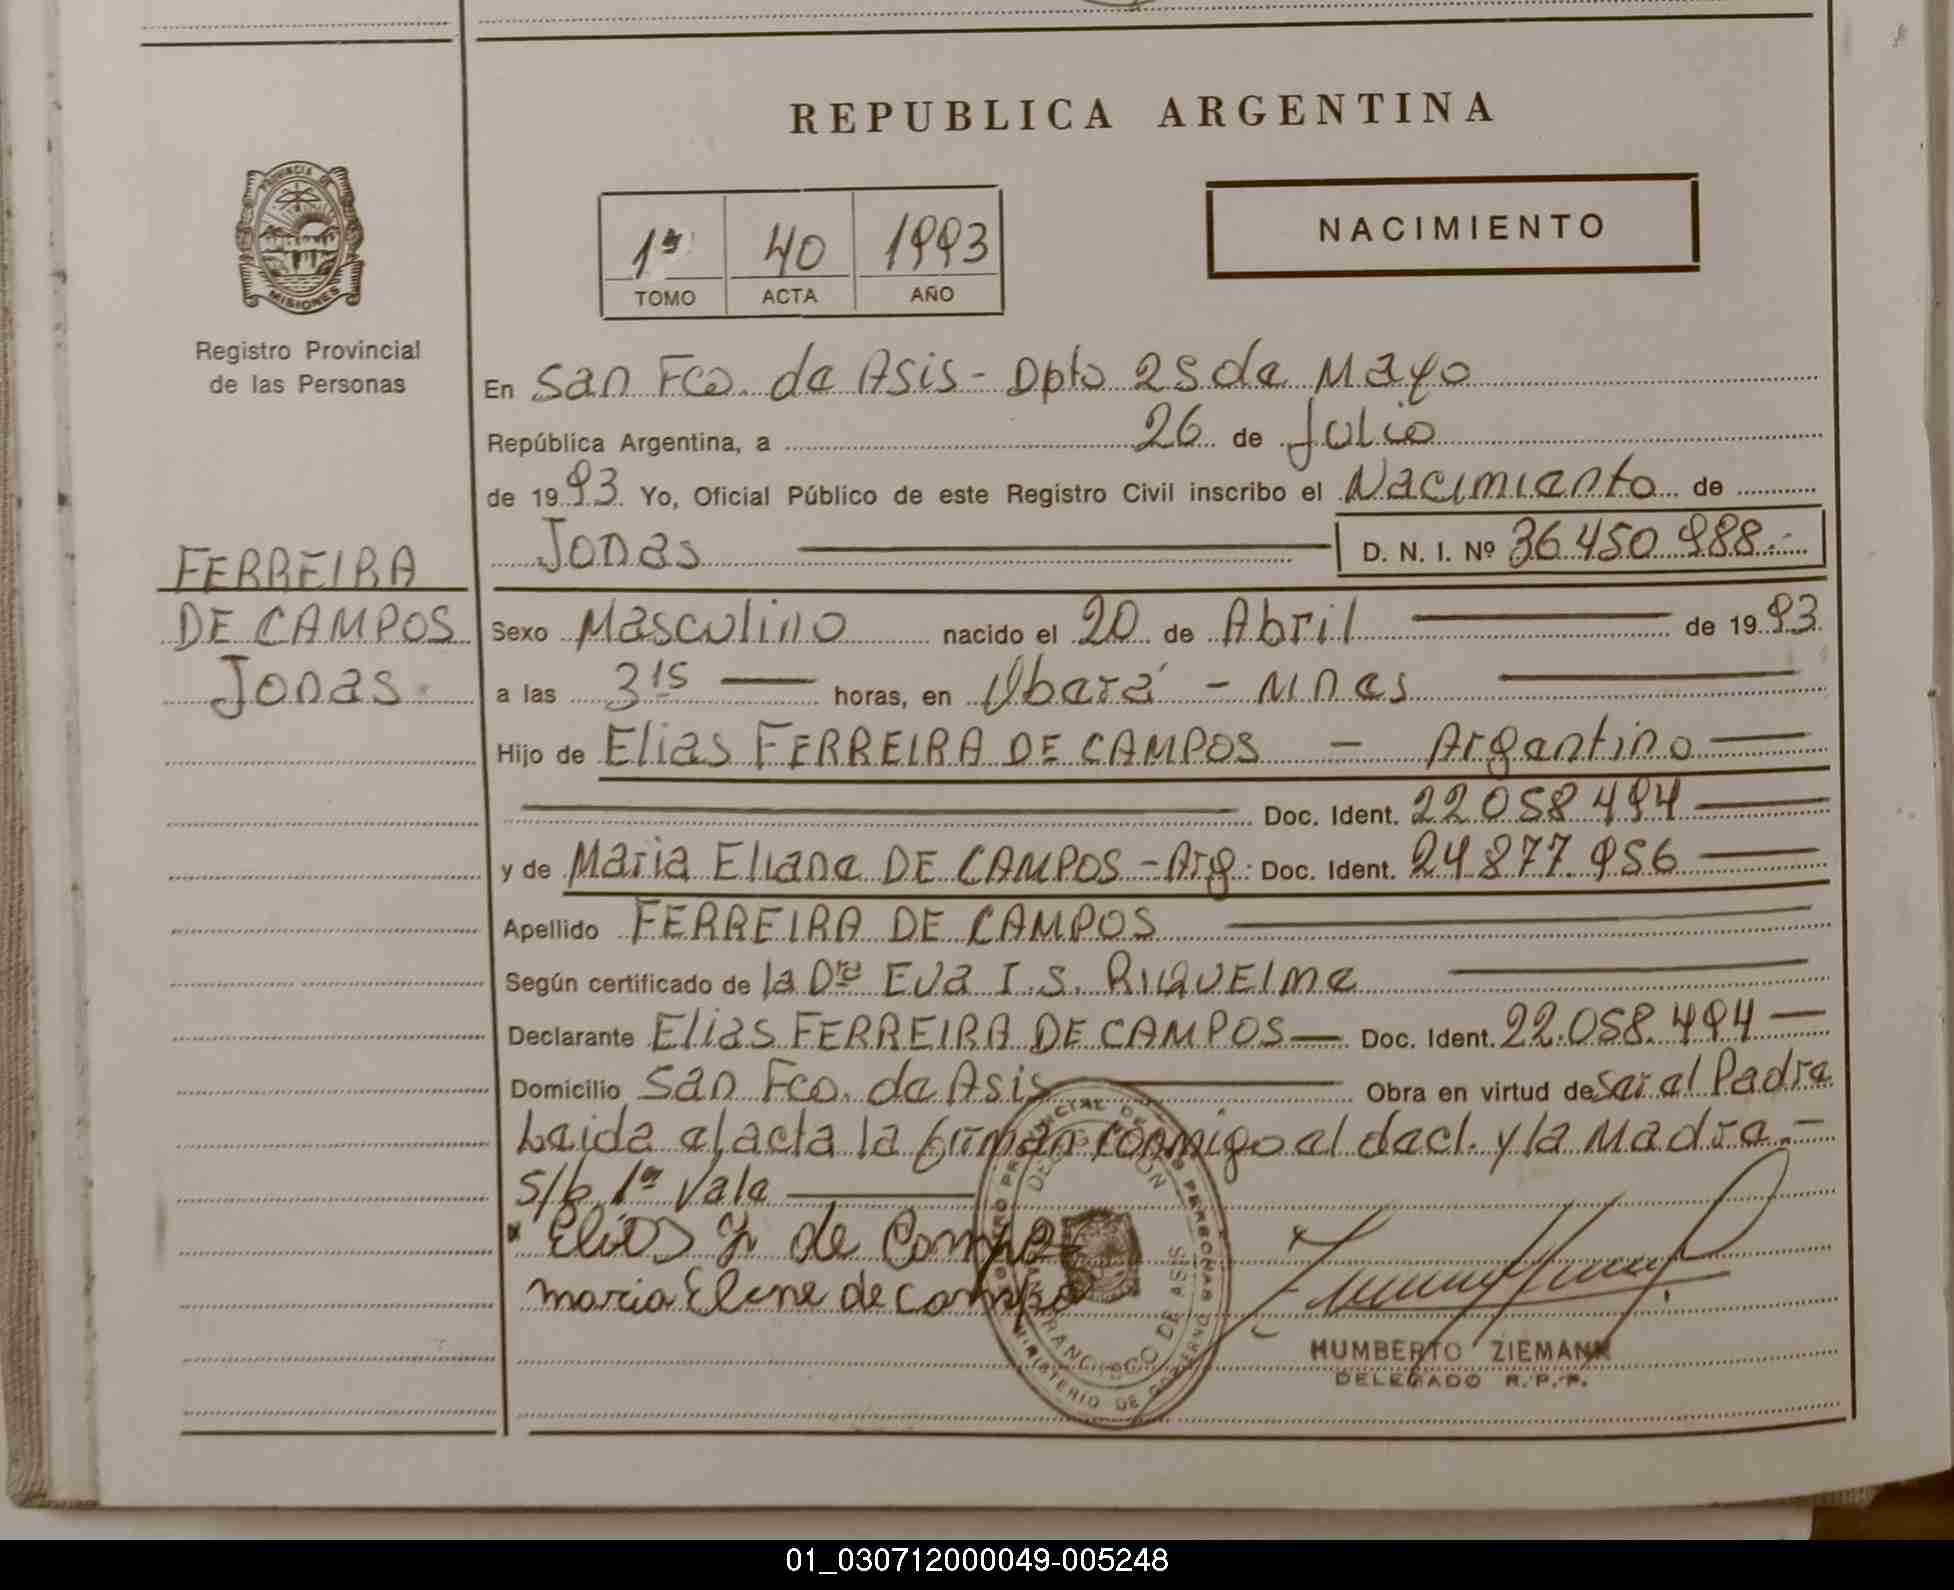 REPUBLICA ARGENTINA
PROVINCIA DE
MISIONES
Registro Provincial
de las Personas
1º 40 1993
TOMO ACTA AÑO
NACIMIENTO
En San Fco. de Asis - Dpto 25 de Mayo
República Argentina, a 26 de Julio
de 1993 Yo, Oficial Público de este Registro Civil inscribo el Nacimiento de
Jonas D. N. I. Nº 36.450.988.-
FERREIRA
DE CAMPOS
Jonas
Sexo Masculino nacido el 20 de Abril de 1993
a las 3 15 horas, en Oberá - Mnes
Hijo de Elias FERREIRA DE CAMPOS - Argentino
Doc. Ident. 22.058.494
y de Maria Eliane DE CAMPOS - Arg. Doc. Ident. 24.877.956
Apellido FERREIRA DE CAMPOS
Según certificado de la Dra Eva I. S. RIQUELME
Declarante Elias FERREIRA DE CAMPOS Doc. Ident. 22.058.494
Domicilio San Fco. de Asis Obra en virtud de Ser el Padre
Leida el acta la firman conmigo el decl. y la Madre.-
S/b 1º Vale
Elias F de Campos
maria Elene de Campos
SAN FRANCISCO DE ASIS
MINISTERIO DE GOBIERNO
HUMBERTO ZIEMANN
DELEGADO R.P.P.
01_030712000049-005248